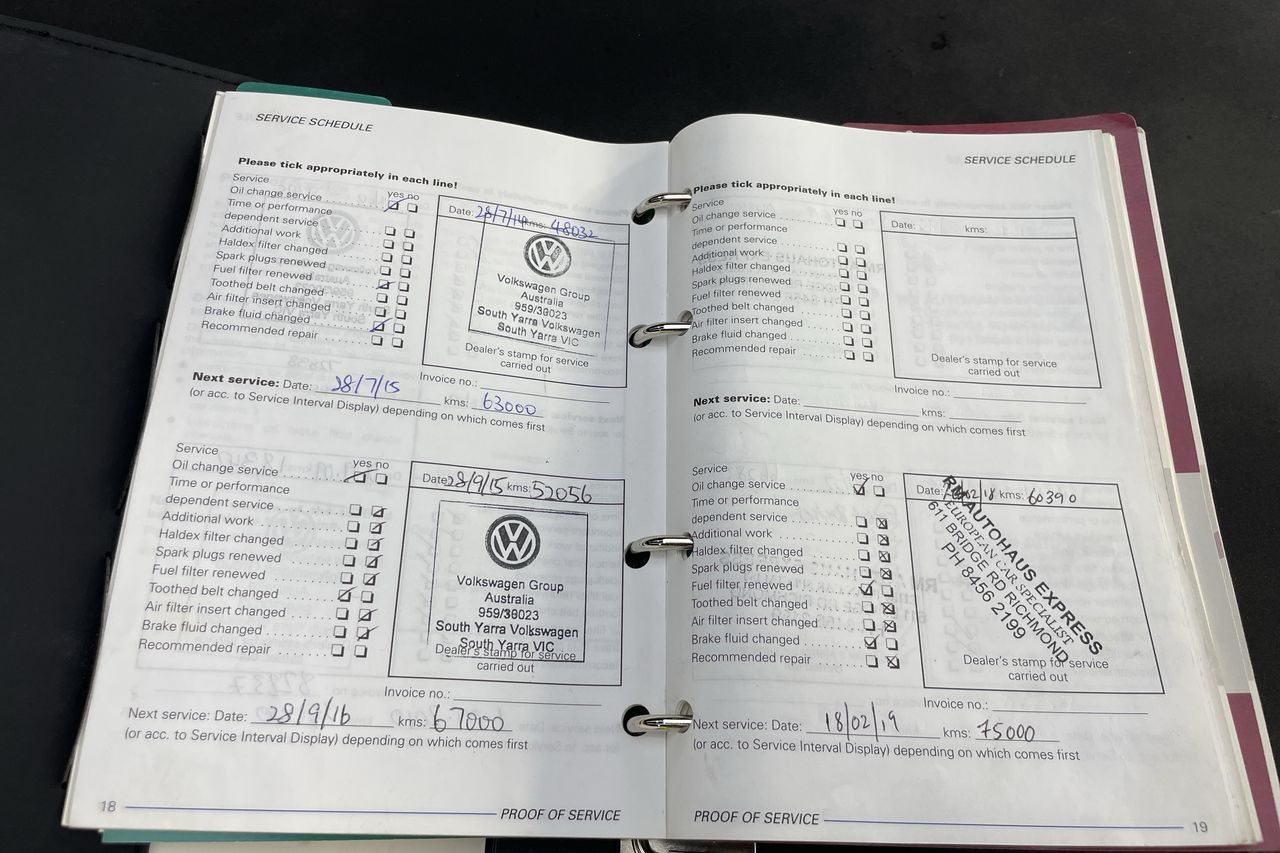 SERVICE SCHEDULE
Please tick appropriately in each line!
Service
yes no
Oil change service
Time or performance
dependent service
Additional work
Haldex filter changed
Spark plugs renewed
Fuel filter renewed
Toothed belt changed
Air filter insert changed
Brake fluid changed
Recommended repair
Date: 28/7/14 kms: 48032
Volkswagen Group
Australia
959/36023
South Yarra Volkswagen
South Yarra VIC
Dealer's stamp for service
carried out
Invoice no.:
Next service: Date: 28/7/15 kms: 63000
(or acc. to Service Interval Display) depending on which comes first
Service
yes no
Oil change service
Time or performance
dependent service
Additional work
Haldex filter changed
Spark plugs renewed
Fuel filter renewed
Toothed belt changed
Air filter insert changed
Brake fluid changed
Recommended repair
Date 28/9/15 kms: 52056
Volkswagen Group
Australia
959/36023
South Yarra Volkswagen
South Yarra VIC
Dealer's stamp for service
carried out
Invoice no.:
Next service: Date: 28/9/16 kms: 67000
(or acc. to Service Interval Display) depending on which comes first
18
PROOF OF SERVICE
SERVICE SCHEDULE
Please tick appropriately in each line!
Service
yes no
Oil change service
Time or performance
dependent service
Additional work
Haldex filter changed
Spark plugs renewed
Fuel filter renewed
Toothed belt changed
Air filter insert changed
Brake fluid changed
Recommended repair
Date: kms:
Dealer's stamp for service
carried out
Invoice no.:
Next service: Date: kms:
(or acc. to Service Interval Display) depending on which comes first
Service
yes no
Oil change service
Time or performance
dependent service
Additional work
Haldex filter changed
Spark plugs renewed
Fuel filter renewed
Toothed belt changed
Air filter insert changed
Brake fluid changed
Recommended repair
Date: kms: 60390
AUTOHAUS EXPRESS
EUROPEAN CAR SPECIALIST
611 BRIDGE RD RICHMOND
PH 8456 2199
Dealer's stamp for service
carried out
Invoice no.:
Next service: Date: 18/02/19 kms: 75000
(or acc. to Service Interval Display) depending on which comes first
PROOF OF SERVICE
19